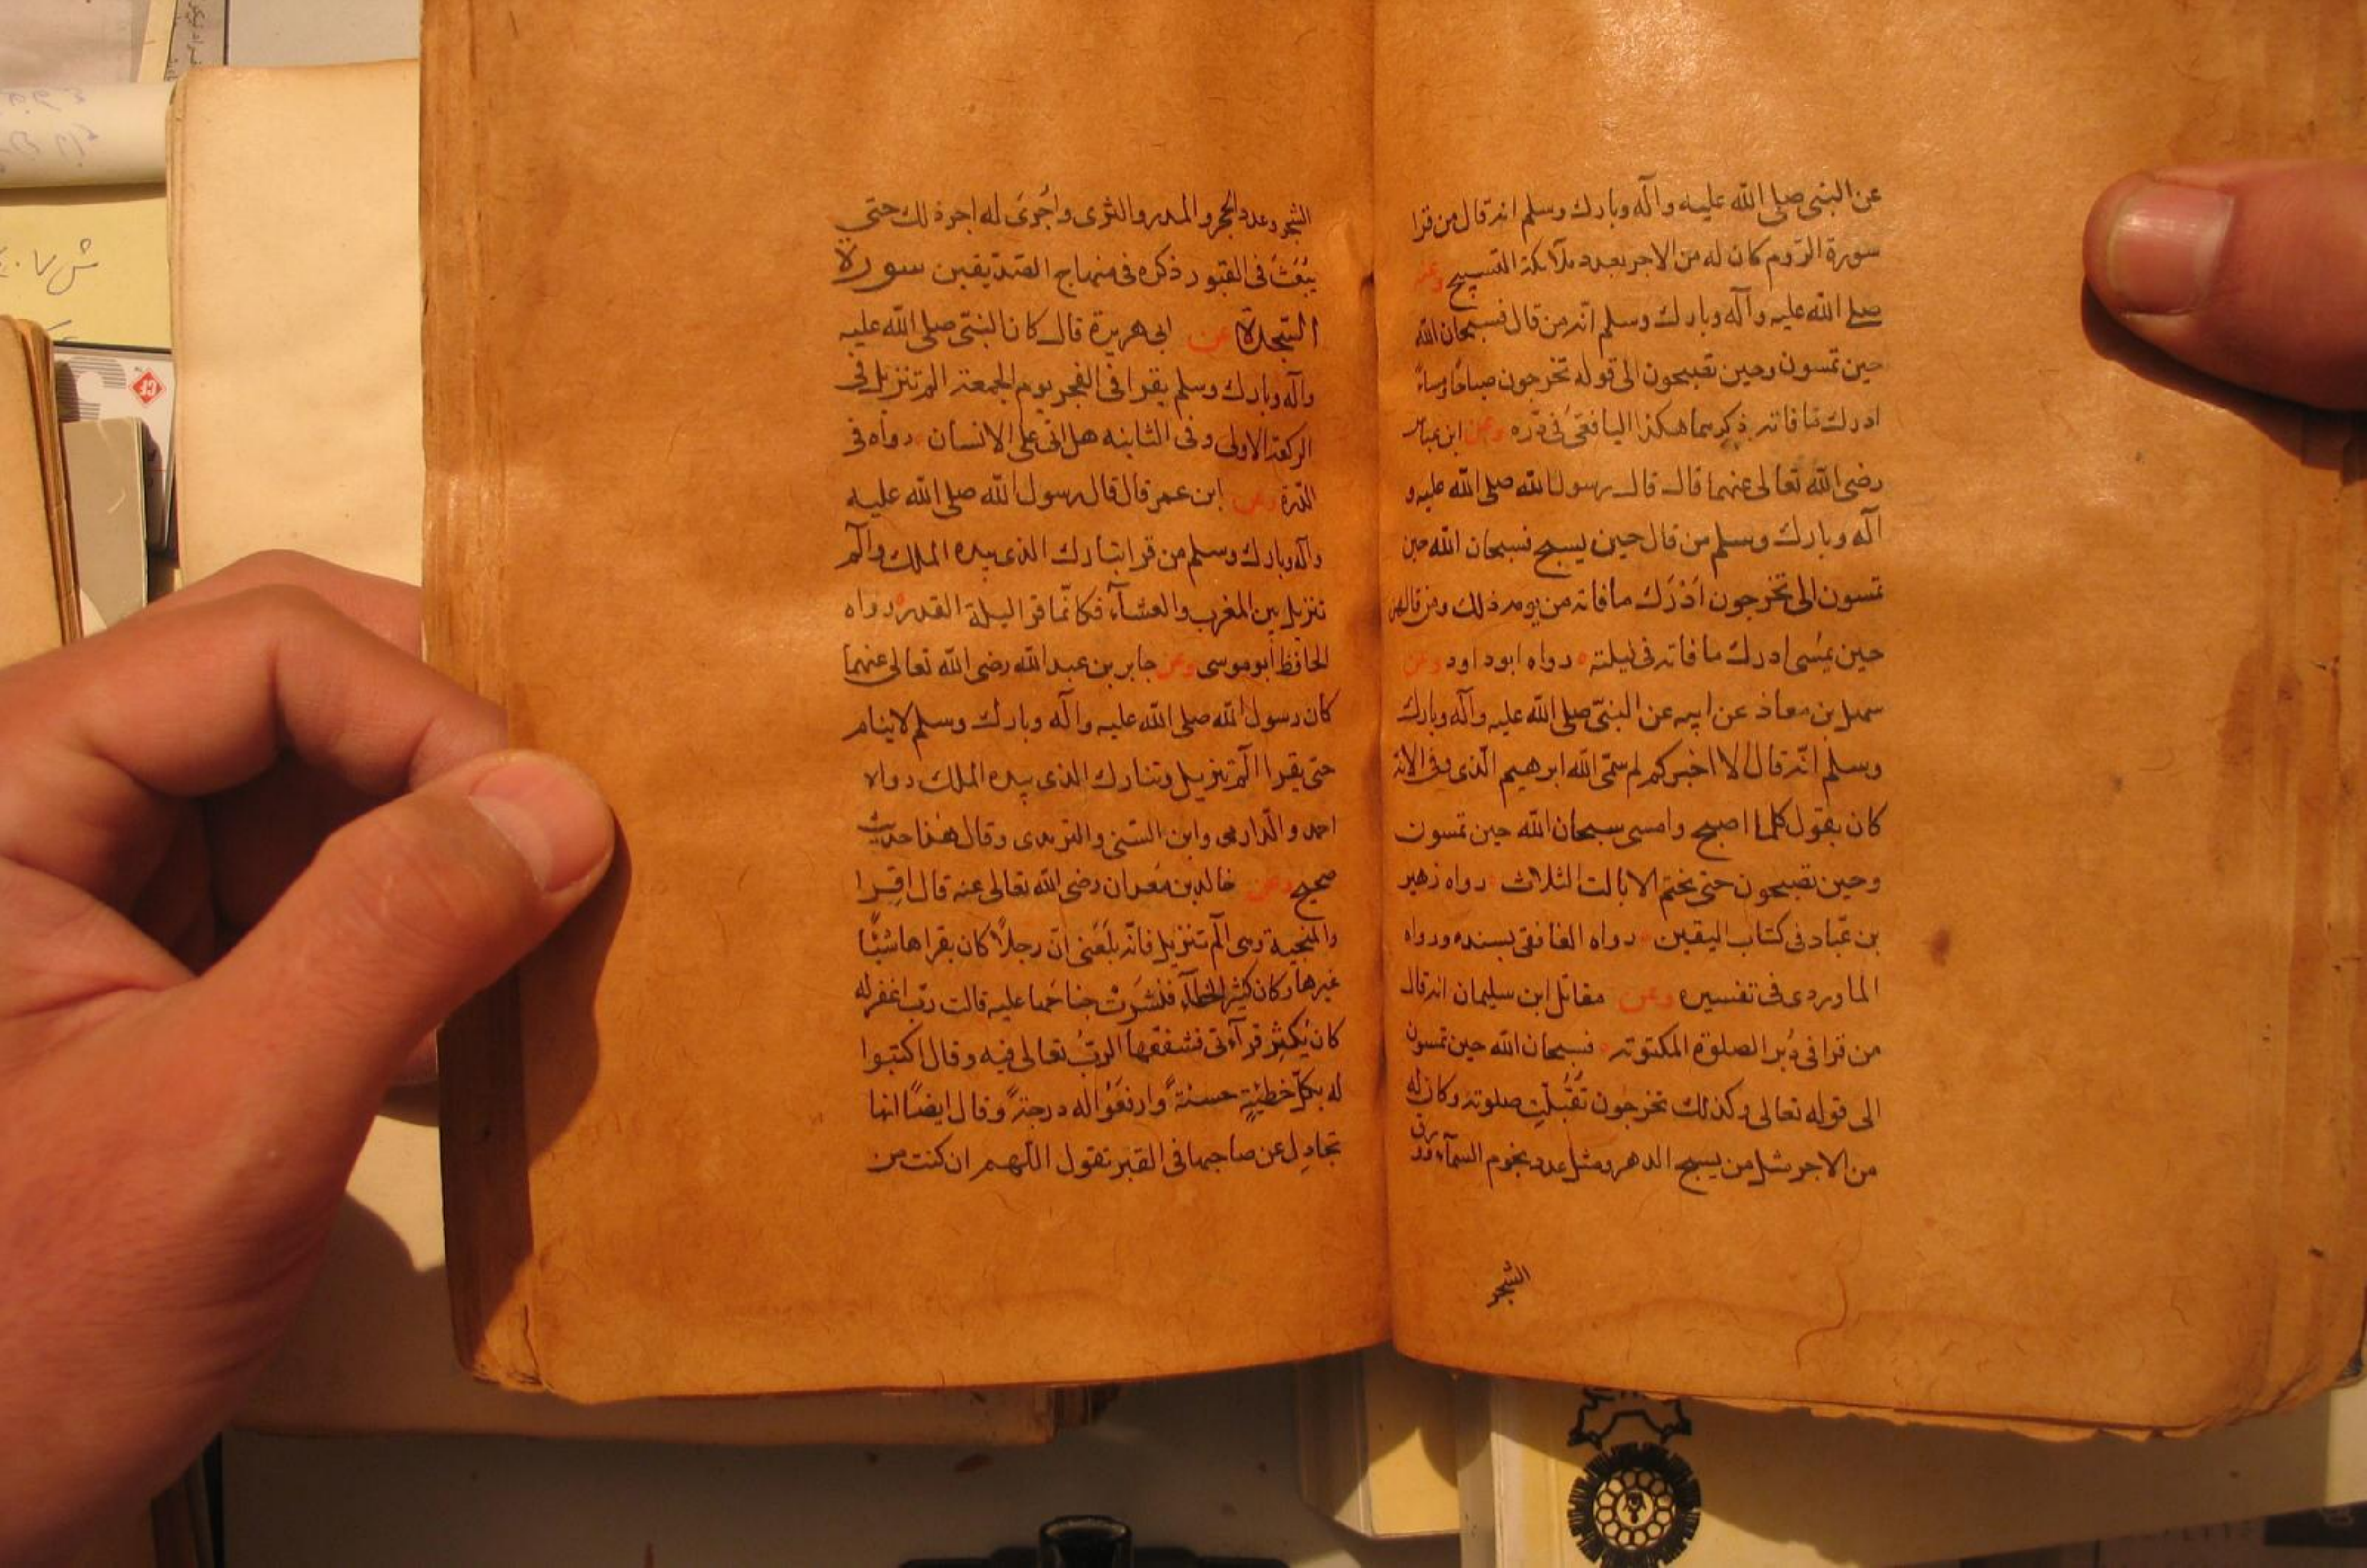 عن النبى صلى الله عليه وآله وبارك وسلم انه قال من قرا
سورة الروم كان له من الاجر بعدد ملآئكة التسبيح وعنه
صلى الله عليه وآله وبارك وسلم انه من قال فسبحان الله
حين تمسون وحين تصبحون الى قوله تخرجون صباحًا ومساءً
ادرك ما فاته ذكرهما هكذا اليافعى فى درّه وعن ابن عباس
رضى الله تعالى عنهما قال قال رسول الله صلى الله عليه و
آله وبارك وسلم من قال حين يسبح فسبحان الله حين
تمسون الى تخرجون اَدْرَك ما فاته من يومه ذلك ومن قالهن
حين يمسى ادرك ما فاته فى ليلته رواه ابو داود وعن
سهل بن معاذ عن ابيه عن النبىّ صلى الله عليه وآله وبارك
وسلم انّه قال الا اخبركم لم سمّى الله ابرهيم الّذى وفى الانه
كان يقول كلما اصبح وامسى سبحان الله حين تمسون
وحين تصبحون حتى يختم الايات الثلاث رواه زهير
بن عبّاد فى كتاب اليقين رواه الغافقى بسنده ورواه
الماوردى فى تفسيره وعن مقاتل ابن سليمان انه قال
من قرا فى دُبر الصلوة المكتوبه فسبحان الله حين تمسون
الى قوله تعالى وكذلك تخرجون تُقُبِّلَت صلوته وكان له
من الاجر مثل من يسبح الدهر ومثل عدد نجوم السمآء وورق
الشجر
الشجر وعدد الحجر والمدر والثرى واُجرىَ له اجر ذلك حتى
يبعث فى القبور ذكره فى منهاج الصديقين سورة
السّجدة عن ابى هريرة قال كان النبىّ صلى الله عليه
وآله وبارك وسلم يقرا فى الفجر يوم الجمعة الم تنزيل فى
الركعة الاولى وفى الثانيه هل اتى على الانسان رواه فى
الدّرة وعن ابن عمر قال قال رسول الله صلى الله عليه
وآله وبارك وسلم من قرا تبارك الذى بيده الملك والٓم
تنزيل بين المغرب والعشآء فكانّما قرا ليلة القدر رواه
الحافظ أبو موسى وعن جابر بن عبد الله رضى الله تعالى عنهما
كان رسول الله صلى الله عليه وآله وبارك وسلم لا ينام
حتى يقرا الٓم تنزيل وتبارك الذى بيده الملك رواه
احمد والدّارمى وابن السّنى والترمدى وقال هذا حديث
صحيح وعن خالد بن مَعدان رضى الله تعالى عنه قال اقرا
والمنجية وهى الٓم تنزيل فانّه بلغنى انّ رجلاً كان يقراها شيئًا
غيرها وكان كثير الخطآء فنشرت جناحها عليه قالت ربّ اغفر له
كان يُكثِر قرآءتى فشفّعها الربُّ تعالى فيه وقال اكتبوا
له بكلّ خطيئةٍ حسنةً وارفعُوا له درجةً وقال ايضًا انها
تجادِل عن صاحبها فى القبر تقول اللّهم ان كنت من